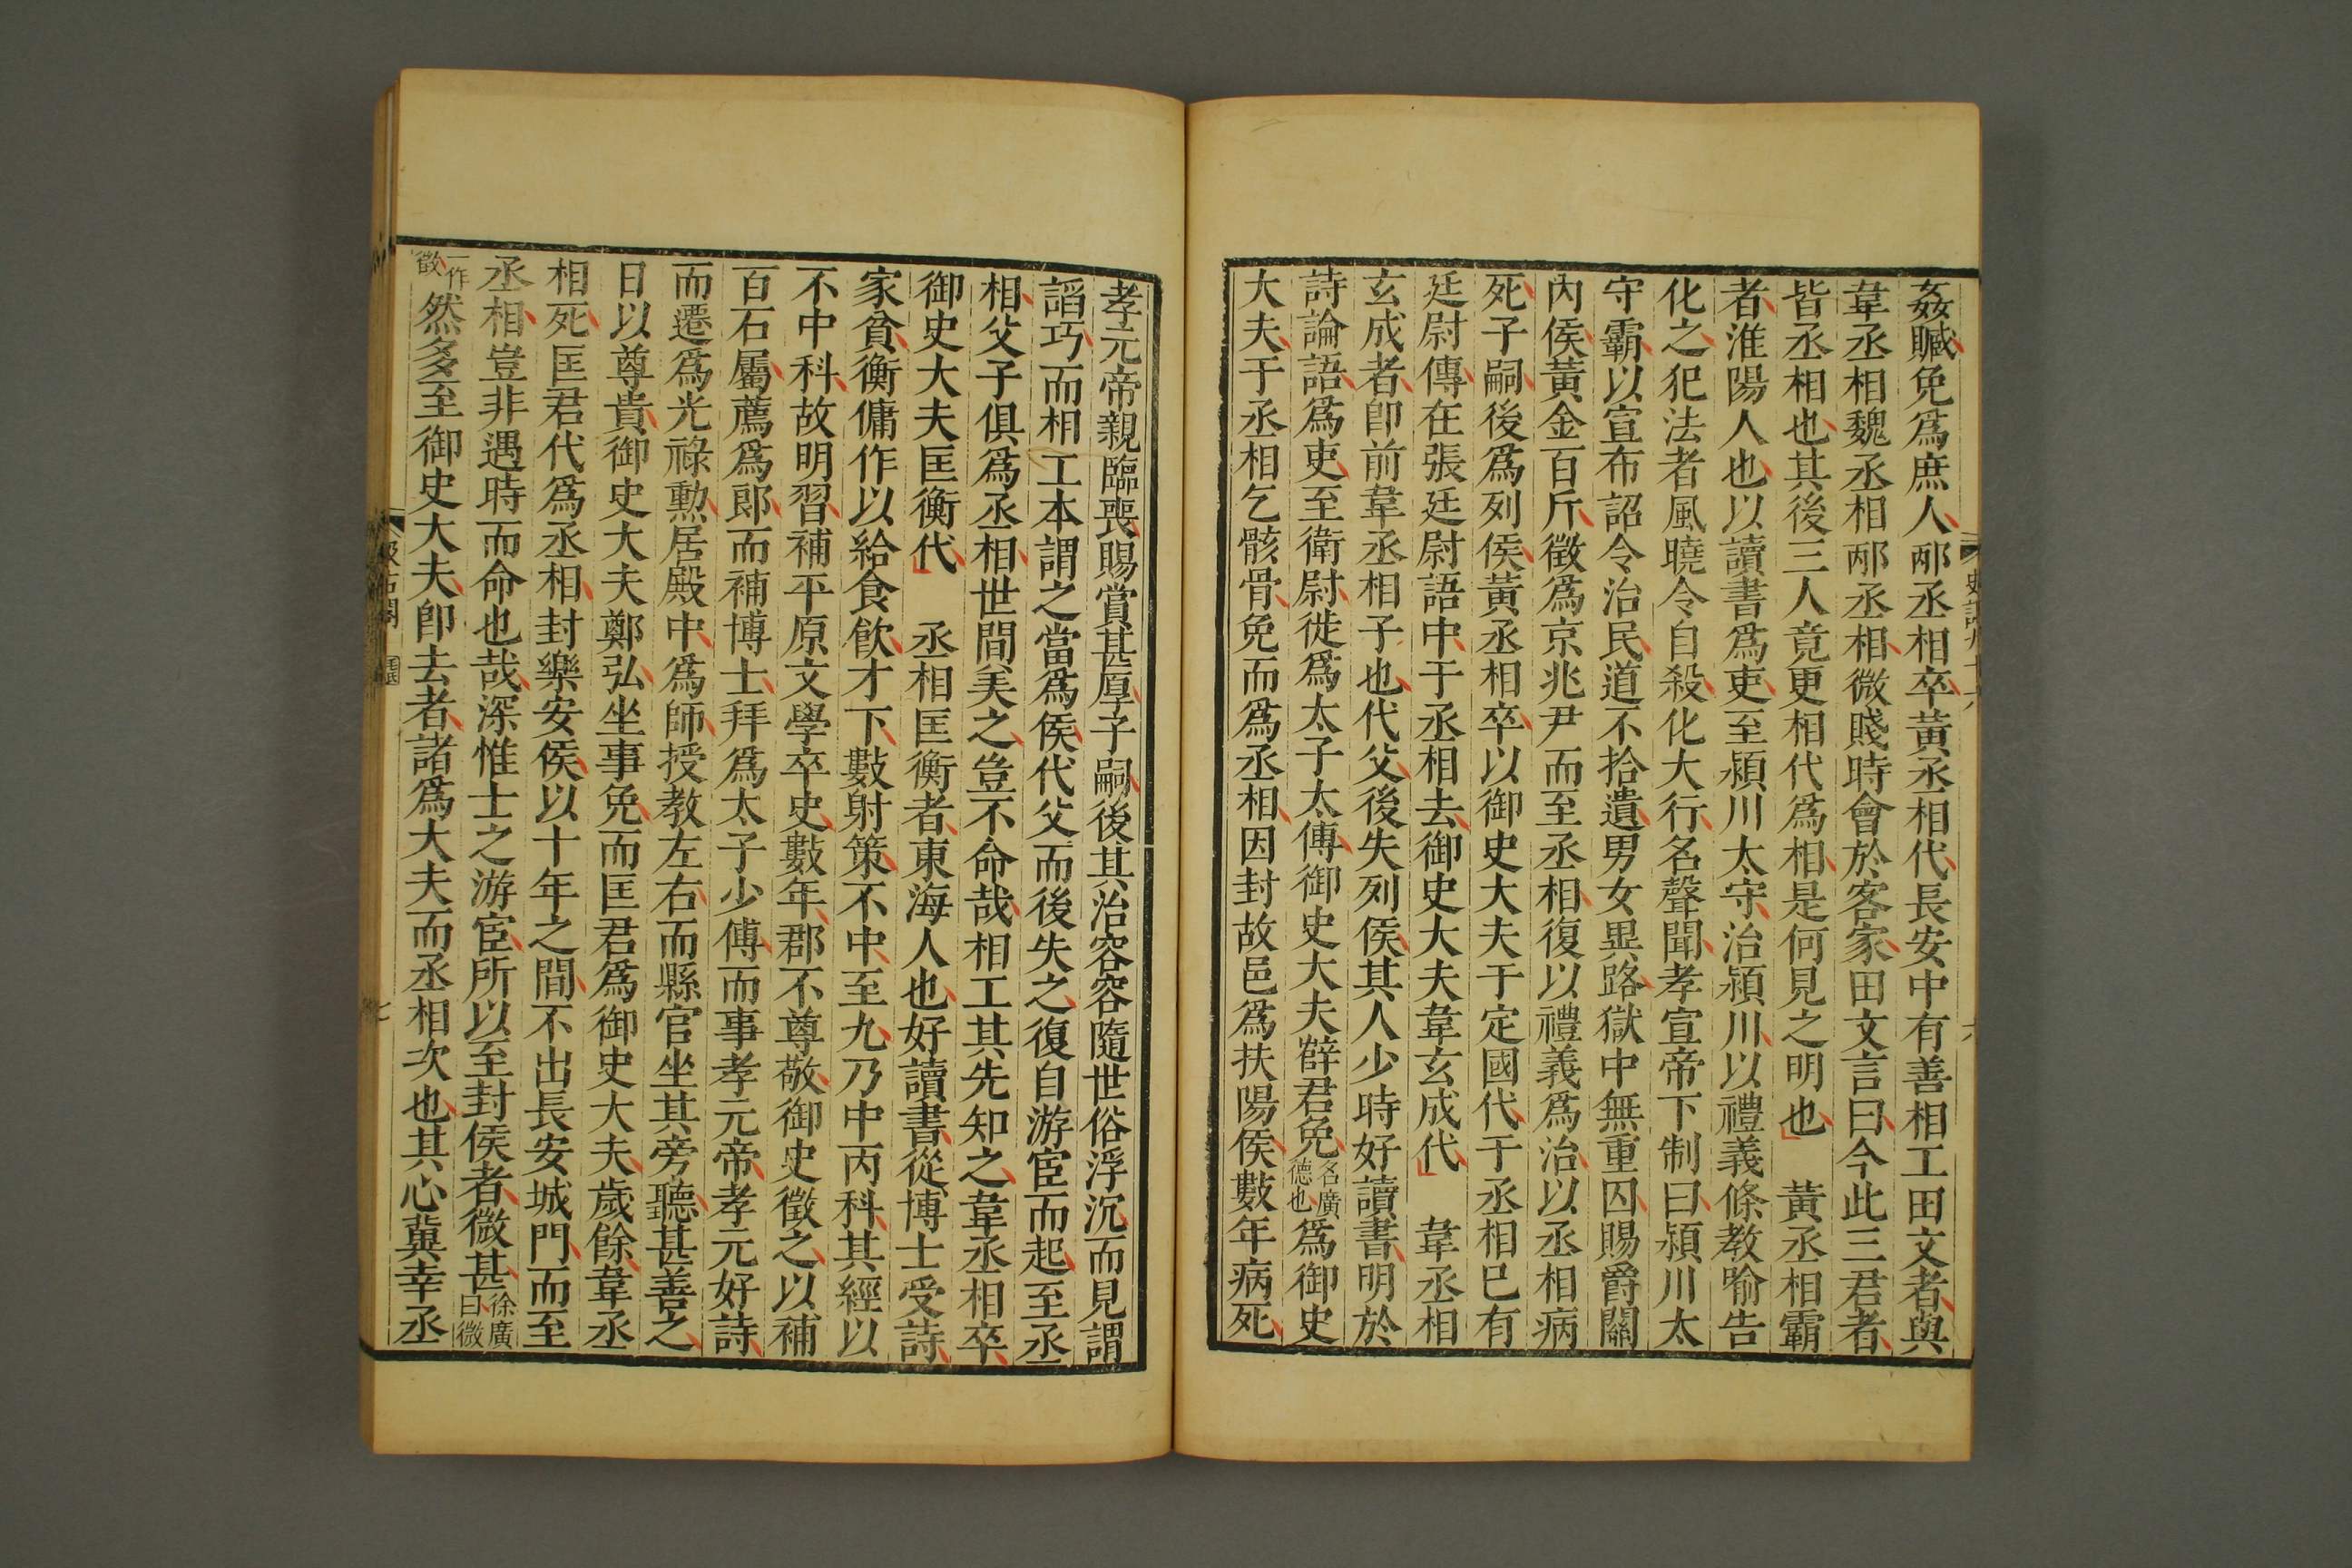 姦贓免爲庶人邴丞相卒黃丞相代長安中有善相工田文者與
韋丞相魏丞相邴丞相微賤時會於客家田文言曰今此三君者
皆丞相也其後三人竟更相代爲相是何見之明也 黃丞相霸
者淮陽人也以讀書爲吏至潁川太守治潁川以禮義條教喻告
化之犯法者風曉令自殺化大行名聲聞孝宣帝下制曰潁川太
守霸以宣布詔令治民道不拾遺男女異路獄中無重囚賜爵關
內侯黃金百斤徵爲京兆尹而至丞相復以禮義爲治以丞相病
死子嗣後爲列侯黃丞相卒以御史大夫于定國代于丞相已有
廷尉傳在張廷尉語中于丞相去御史大夫韋玄成代 韋丞相
玄成者卽前韋丞相子也代父後失列侯其人少時好讀書明於
詩論語爲吏至衛尉徙爲太子太傅御史大夫薛君免名廣德也爲御史
大夫于丞相乞骸骨免而爲丞相因封故邑爲扶陽侯數年病死
孝元帝親臨喪賜賞甚厚子嗣後其治容容隨世俗浮沉而見謂
謟巧而相工本謂之當爲侯代父而後失之復自游宦而起至丞
相父子俱爲丞相世間美之豈不命哉相工其先知之韋丞相卒
御史大夫匡衡代 丞相匡衡者東海人也好讀書從博士受詩
家貧衡傭作以給食飲才下數射策不中至九乃中丙科其經以
不中科故明習補平原文學卒史數年郡不尊敬御史徵之以補
百石屬薦爲郎而補博士拜爲太子少傅而事孝元帝孝元好詩
而遷爲光祿勲居殿中爲師授教左右而縣官坐其旁聽甚善之
日以尊貴御史大夫鄭弘坐事免而匡君爲御史大夫歲餘韋丞
相死匡君代爲丞相封樂安侯以十年之間不出長安城門而至
丞相豈非遇時而命也哉深惟士之游宦所以至封侯者微甚徐廣曰微
一作徵然多至御史大夫卽去者諸爲大夫而丞相次也其心冀幸丞
汲古閣